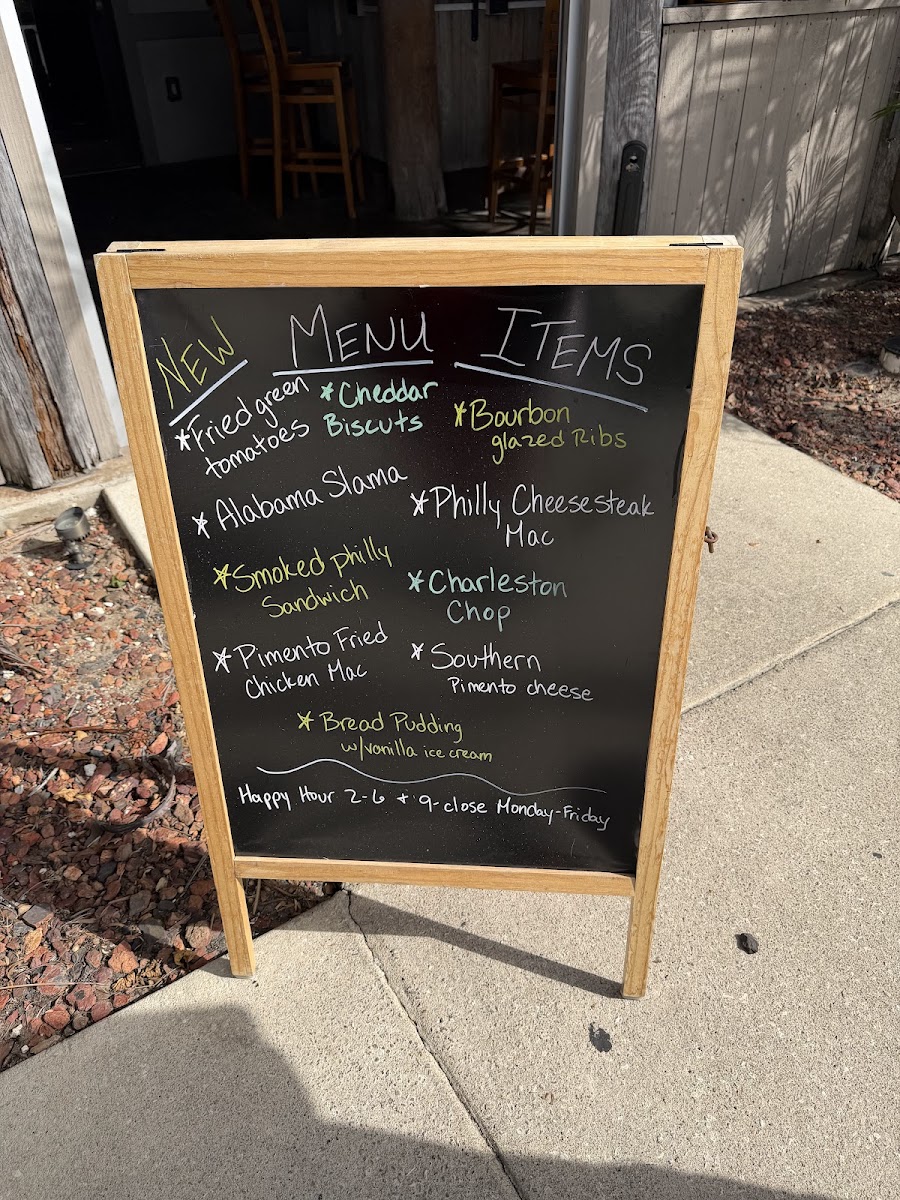 NEW MENU ITEMS
*Fried green
tomatoes
*Cheddar
Biscuts
*Bourbon
glazed Ribs
*Alabama Slama
*Philly Cheesesteak
Mac
*Smoked philly
Sandwich
*Charleston
Chop
*Pimento Fried
Chicken Mac
*Southern
Pimento cheese
*Bread Pudding
w/vanilla ice cream
Happy Hour 2-6 + 9-close Monday-Friday